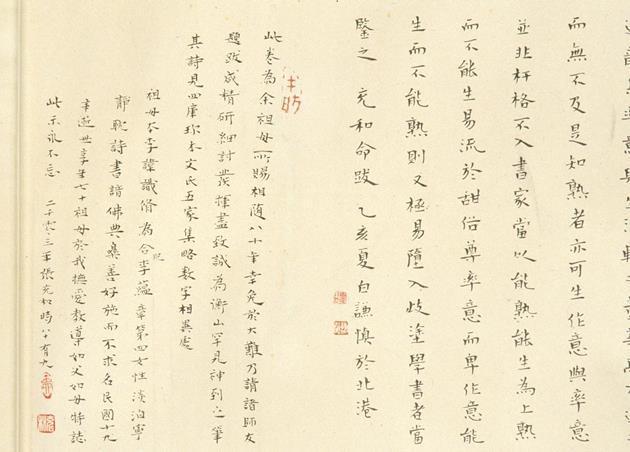 而無不及是知熟者亦可生作意與率意
並非扞格不入書家當以能熟能生為上熟
而不能生易流於甜俗尊率意而卑作意能
生而不能熟則又極易墮入歧塗學書者當
鑒之 充和命跋 乙亥夏白謙慎於北港
此卷為余祖母所賜相隨八十年幸免於大難乃請諸師友
題跋咸精研細討發揮盡致誠為衡山罕見神到之筆
其詩見四庫珍本文氏五家集略數字相異處
祖母本李諱識脩為合肥李蘊章第四女性淡泊寧
靜耽詩書諳佛典樂善好施而不求名民國十九
年逝世享年七十祖母於我撫愛教導如父如母特誌
此示永不忘 二千零三年張充和時八十有九